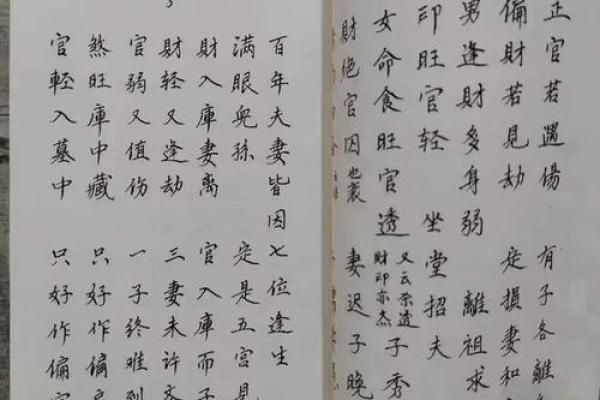 正官若遇傷 有子各離
偏財若見劫 定損妻和
男逢財多身弱 離祖求
印旺官轻 坐堂招夫
女命食旺官透 又云杀透 財印亦杰 子秀
財绝官囚 也衰 妻迟子晚
百年夫妻皆因七位逢生
满眼兒孫 定是五宫見
財入庫妻離 官入庫而子
財轻又逢劫 三妻未许
官弱又值伤 一子终难到
煞旺庫中藏 只好作偏
官輕入墓中 只好作偏